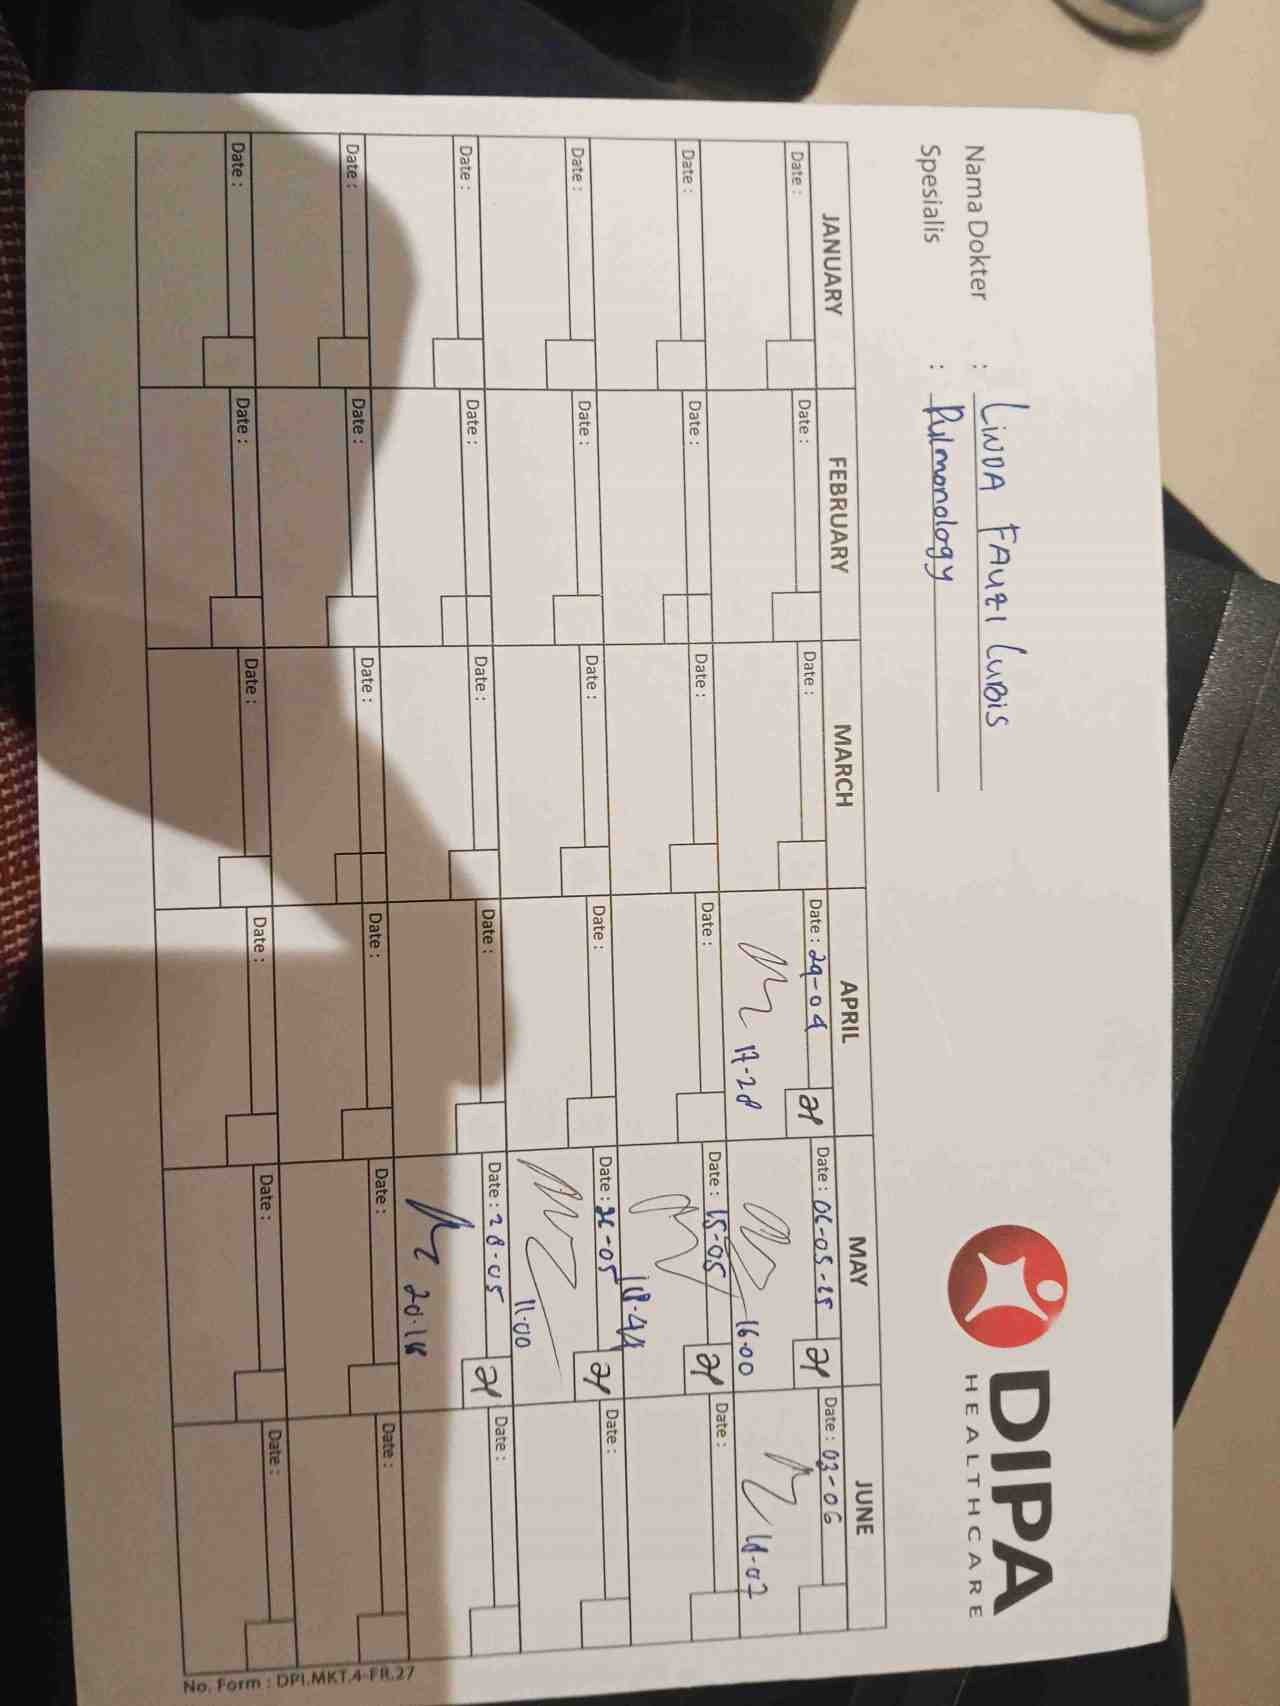 DIPA
HEALTHCARE
Nama Dokter : LINDA FAUZI LUBIS
Spesialis : Pulmonology
JANUARY FEBRUARY MARCH APRIL MAY JUNE
Date : Date : Date : Date : 29-04 Date : 06-05-25 Date : 03-06
17-28 16.00 18-07
Date : Date : Date : Date : Date : 15-05 Date :
18.44
Date : Date : Date : Date : Date : 26-05 Date :
11.00
Date : Date : Date : Date : Date : 28-05 Date :
20.18
Date : Date : Date : Date : Date : Date :
Date : Date : Date : Date : Date : Date :
No. Form : DPI.MKT.4-FR.27